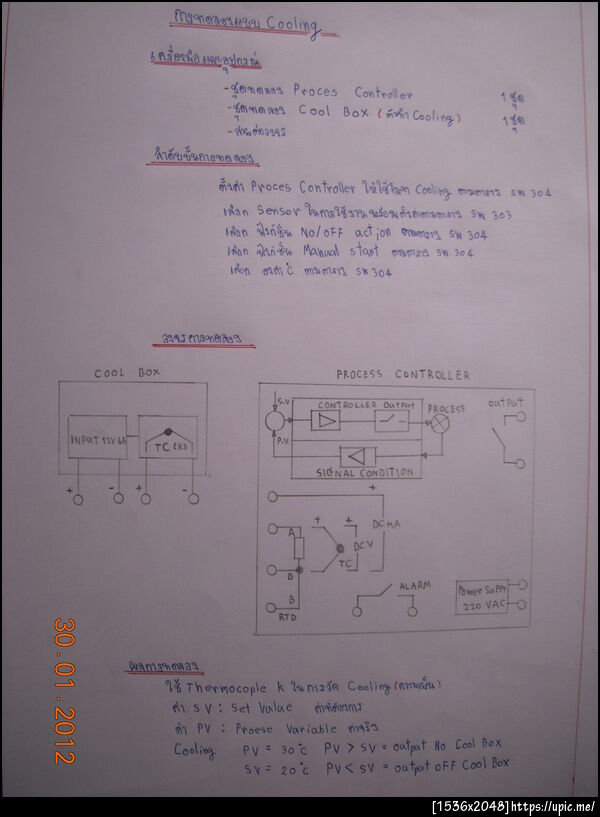 การทดลองแบบ Cooling
เครื่องมือและอุปกรณ์
-ชุดทดลอง Proces Controller 1 ชุด
-ชุดทดลอง Cool Box (ตัวทำ Cooling) 1 ชุด
-สายต่อวงจร
ลำดับขั้นการทดลอง
ตั้งค่า Proces Controller ให้ใช้โหมด Cooling ตามตาราง SW 304
เลือก Sensor ในการใช้งาน พร้อมตั้งค่าตามตาราง SW 303
เลือก ฟังก์ชั่น NO/OFF action ตามตาราง SW 304
เลือก ฟังก์ชั่น Manual start ตามตาราง SW 304
เลือก องศา °C ตามตาราง SW 304
วงจรการทดลอง
COOL BOX
INPUT 12V 6A
TC (K)
+ - + -
PROCESS CONTROLLER
S.V
P.V
CONTROLLER OUTPUT
PROCESS
SIGNAL CONDITION
OUTPUT
+
A
B
B
RTD
+
TC
+
DCV
DC MA
ALARM
POWER SUPPY
220 VAC
ผลการทดลอง
ใช้ Thermocople K ในการวัด Cooling (ความเย็น)
ค่า SV : Set Value ค่าที่ต้องการ
ค่า PV : Proese Variable ค่าจริง
Cooling PV = 30°C PV > SV = output No Cool Box
SV = 20°C PV < SV = output OFF Cool Box
30.01.2012
[1536x2048]https://upic.me/